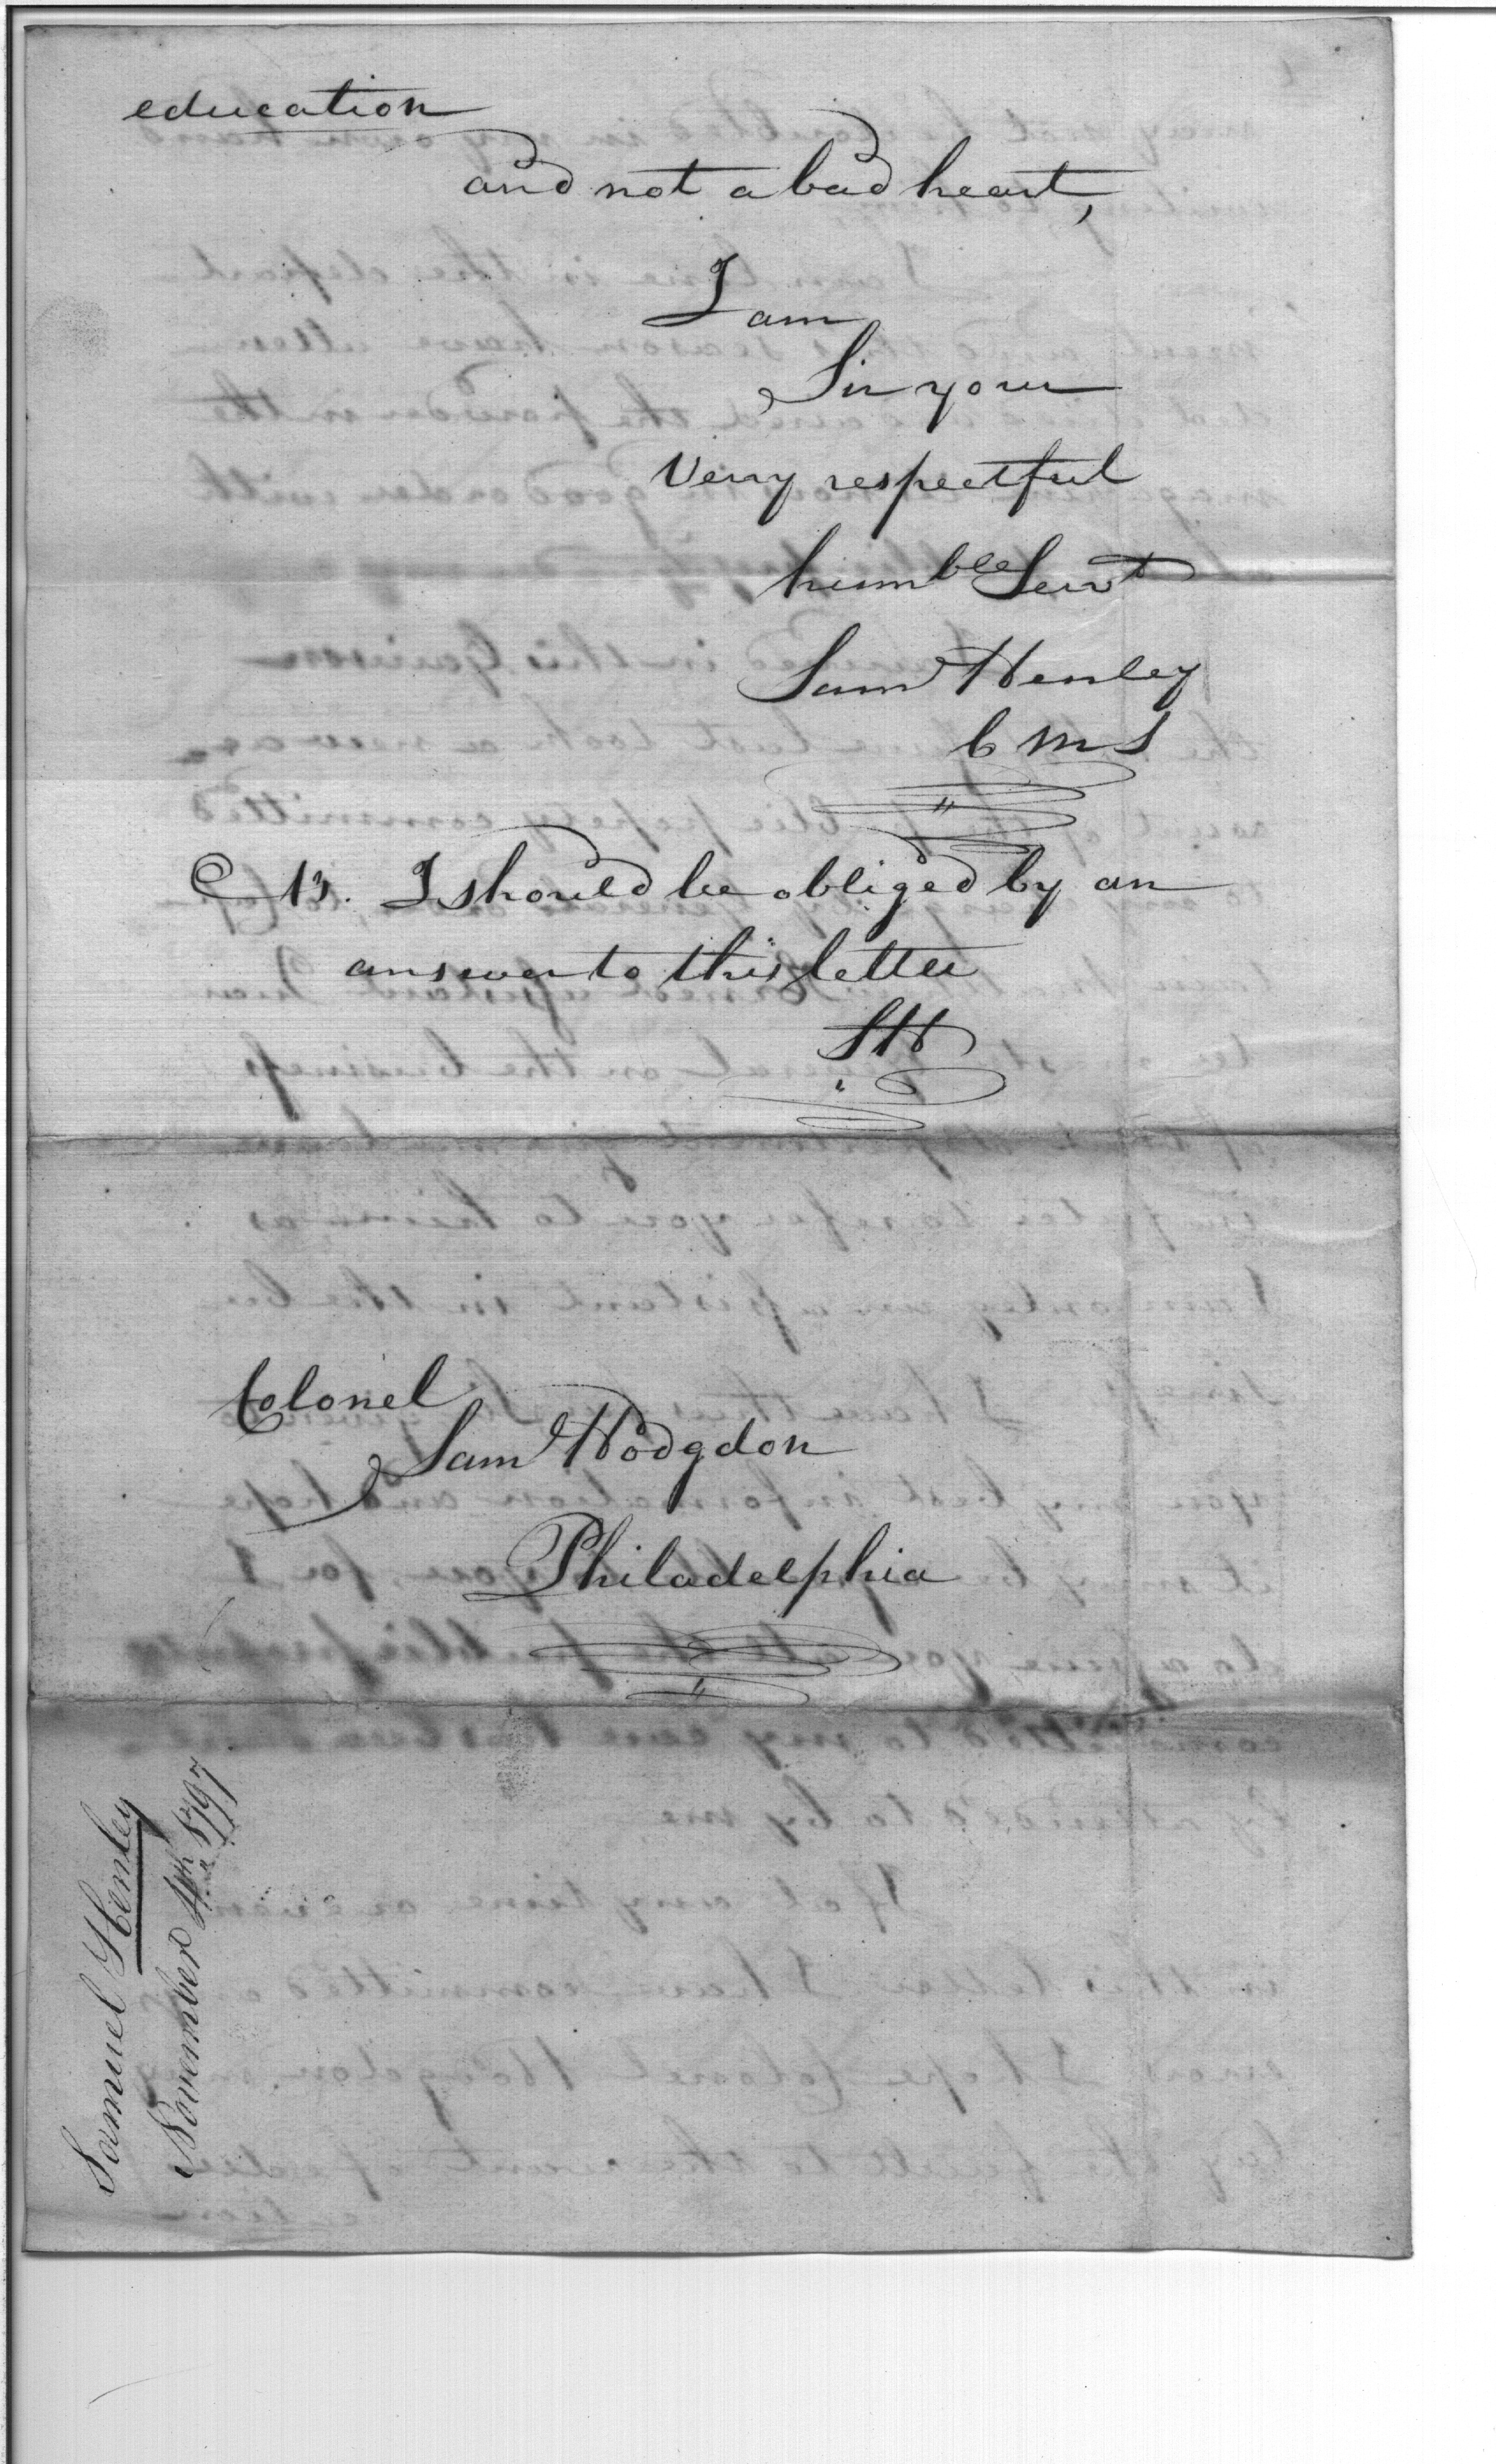 education
and not a bad heart,
I am
Sir your
Very respectful
humble Servt
Saml Henley
C M S
N B. I should be obliged by an
answer to this letter
SH
Colonel
Saml Hodgdon
Philadelphia
Samuel Henley
November 4th 1797